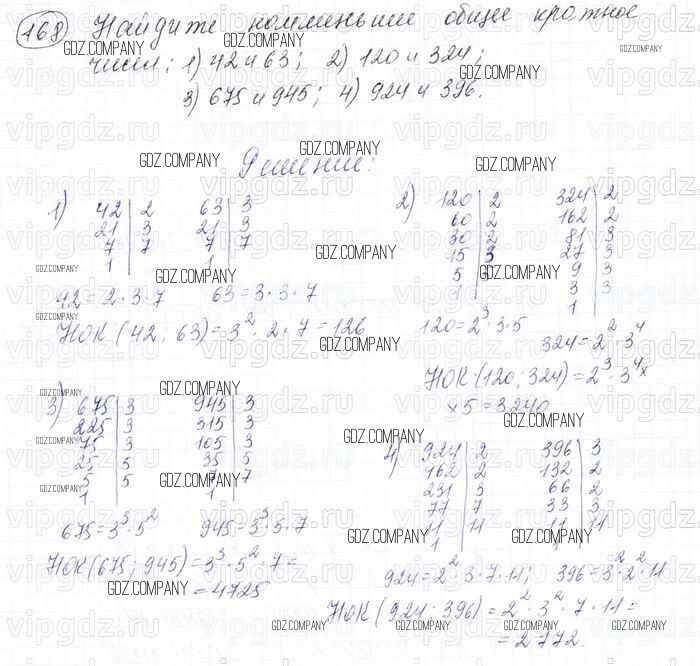 168 Найдите наименьшее общее кратное
чисел: 1) 42 и 63; 2) 120 и 324;
3) 675 и 945; 4) 924 и 396.
Решение:
1)
42 | 2
21 | 3
7 | 7
1
63 | 3
21 | 3
7 | 7
1
42 = 2·3·7 63 = 3·3·7
НОК (42, 63) = 3²·2·7 = 126
2)
120 | 2
60 | 2
30 | 2
15 | 3
5
1
324 | 2
162 | 2
81 | 3
27 | 3
9 | 3
3 | 3
1
120 = 2³·3·5
324 = 2²·3⁴
НОК (120; 324) = 2³·3⁴×
×5 = 3240
3)
675 | 3
225 | 3
75 | 3
25 | 5
5 | 5
1
945 | 3
315 | 3
105 | 3
35 | 5
7 | 7
1
675 = 3³·5² 945 = 3³·5·7
НОК (675; 945) = 3³·5²·7 =
= 4725
4)
924 | 2
462 | 2
231 | 3
77 | 7
11 | 11
1
396 | 3
132 | 2
66 | 2
33 | 3
11 | 11
1
924 = 2²·3·7·11; 396 = 3²·2²·11
НОК (924; 396) = 2²·3²·7·11 =
= 2772.
GDZ.COMPANY
vipgdz.ru